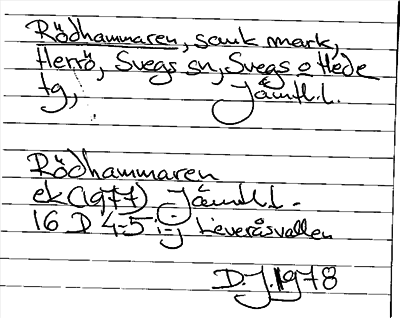 Rödhammaren, sank mark,
Herrö, Svegs sn, Svegs o Hede
tg, Jämtl.l.
Rödhammaren
ek (1977) Jämtl.l.
16 D 4-5 i-j Leveråsvallen
D.J. 1978